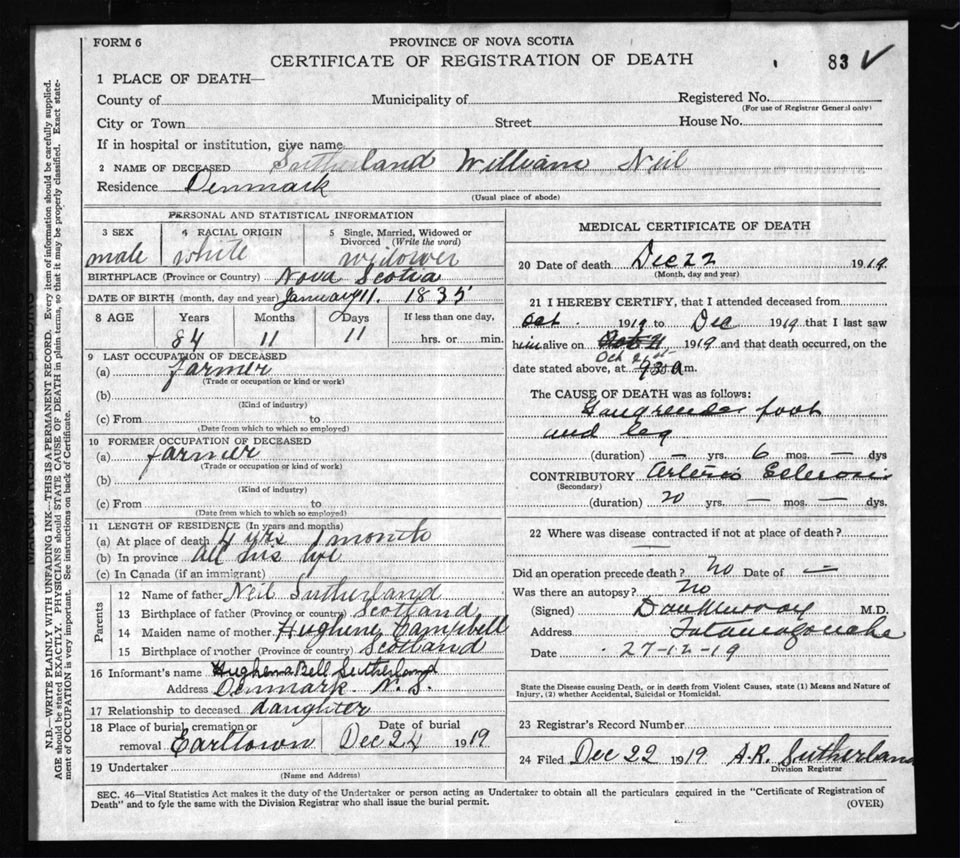 FORM 6
PROVINCE OF NOVA SCOTIA
CERTIFICATE OF REGISTRATION OF DEATH
83 V
1 PLACE OF DEATH—
County of Municipality of Registered No.
(For use of Registrar General only)
City or Town Street House No.
If in hospital or institution, give name
2 NAME OF DECEASED Sutherland William Neil
Residence Denmark
(Usual place of abode)
PERSONAL AND STATISTICAL INFORMATION
3 SEX 4 RACIAL ORIGIN 5 Single, Married, Widowed or
Divorced (Write the word)
male white widower
BIRTHPLACE (Province or Country) Nova Scotia
DATE OF BIRTH (month, day and year) January 11. 1835
8 AGE Years Months Days If less than one day,
84 11 11 hrs. or min.
9 LAST OCCUPATION OF DECEASED
(a) farmer
(Trade or occupation or kind or work)
(b)
(Kind of industry)
(c) From to
(Date from which to which so employed)
10 FORMER OCCUPATION OF DECEASED
(a) farmer
(Trade or occupation or kind of work)
(b)
(Kind of industry)
(c) From to
(Date from which to which so employed)
11 LENGTH OF RESIDENCE (In years and months)
(a) At place of death 4 yrs 1 month
(b) In province all his life
(c) In Canada (if an immigrant)
Parents
12 Name of father Neil Sutherland
13 Birthplace of father (Province or country) Scotland
14 Maiden name of mother Campbell
15 Birthplace of mother (Province or country) Scotland
16 Informant's name Hughena Bell Sutherland
Address Denmark N.S.
17 Relationship to deceased daughter
18 Place of burial, cremation or Date of burial
removal Earltown Dec 24 1919
19 Undertaker
(Name and Address)
MEDICAL CERTIFICATE OF DEATH
20 Date of death Dec 22 1919
(Month, day and year)
21 I HEREBY CERTIFY, that I attended deceased from
Oct. 1919 to Dec 1919 that I last saw
him alive on 1919 and that death occurred, on the
Oct 21st
date stated above, at a m.
The CAUSE OF DEATH was as follows:
foot
and leg
(duration) — yrs. 6 mos. — dys
CONTRIBUTORY Arterio Sclerosis
(Secondary)
(duration) 20 yrs. — mos. — dys.
22 Where was disease contracted if not at place of death?
—
Did an operation precede death? No Date of —
Was there an autopsy? No
(Signed) Dan Murray M.D.
Address Tatamagouche
Date 27-12-19
State the Disease causing Death, or in death from Violent Causes, state (1) Means and Nature of
Injury, (2) whether Accidental, Suicidal or Homicidal.
23 Registrar's Record Number
24 Filed Dec 22 1919 A.R. Sutherland
Division Registrar
SEC. 46—Vital Statistics Act makes it the duty of the Undertaker or person acting as Undertaker to obtain all the particulars required in the "Certificate of Registration of
Death" and to fyle the same with the Division Registrar who shall issue the burial permit. (OVER)
N.B.—WRITE PLAINLY WITH UNFADING INK—THIS IS A PERMANENT RECORD. Every item of information should be carefully supplied.
AGE should be stated EXACTLY. PHYSICIANS should STATE CAUSE OF DEATH in plain terms, so that it may be properly classified. Exact state-
ment of OCCUPATION is very important. See instructions on back of Certificate.